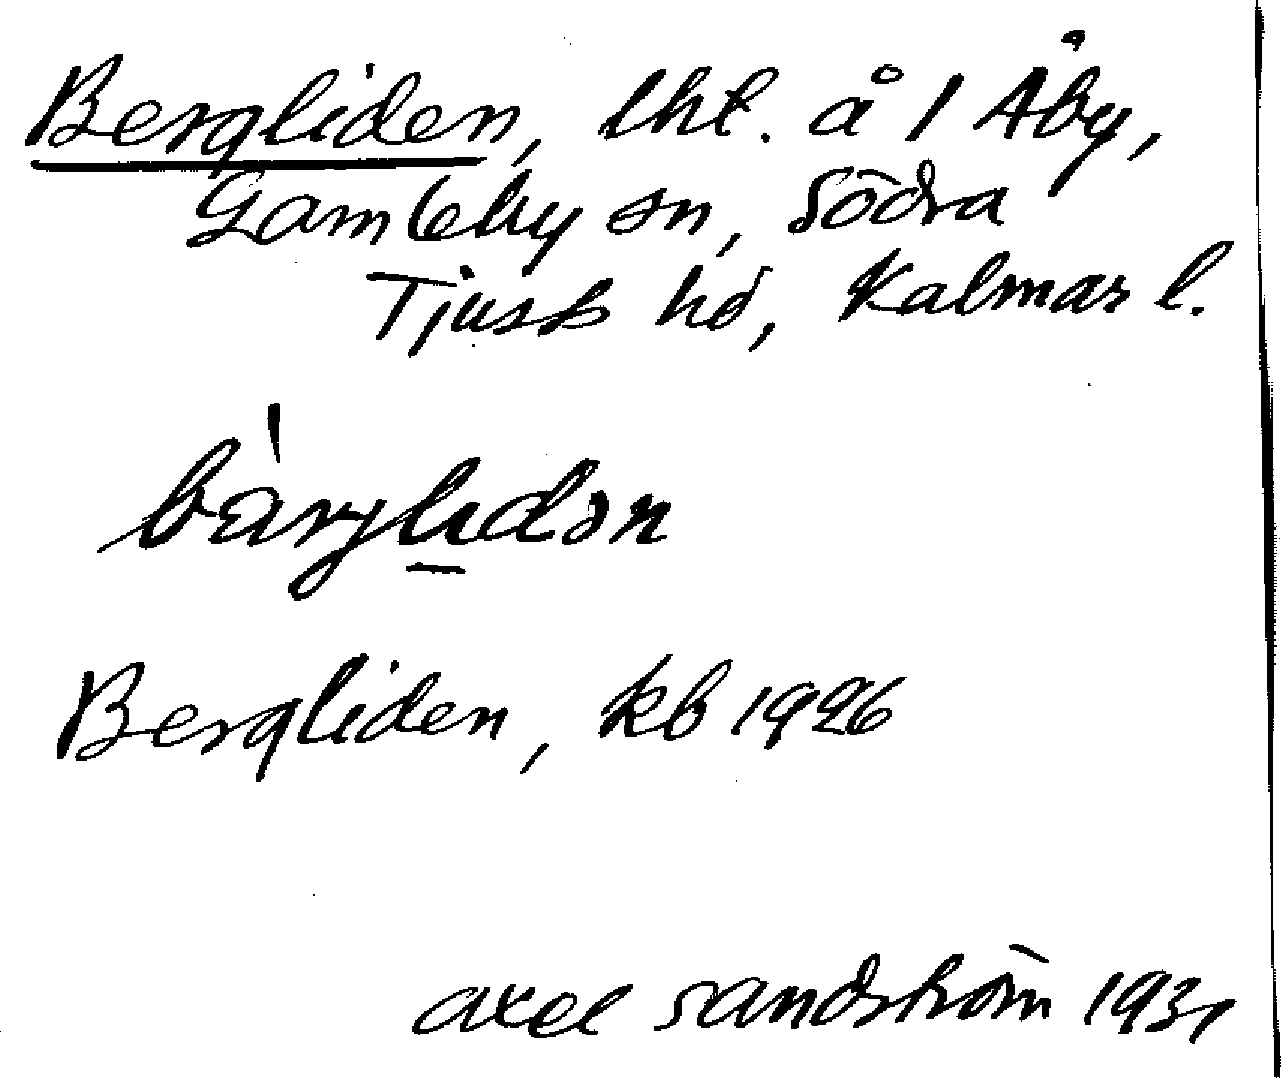 Bergliden, lht. å 1 Åby,
Gamleby sn, Södra
Tjusts hd, Kalmar l.
bàrjlidən
Bergliden, kb 1926
Axel Sandström 1931